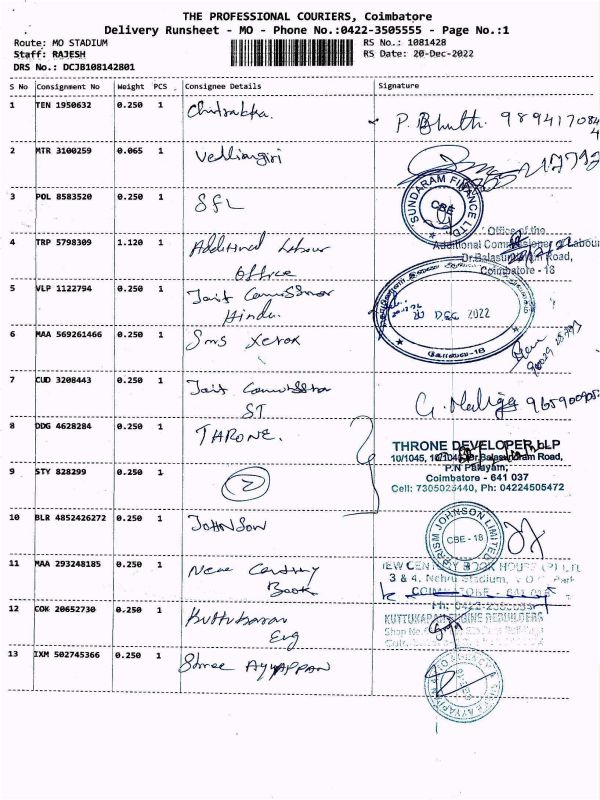 THE PROFESSIONAL COURIERS, Coimbatore
Delivery Runsheet - MO - Phone No.:0422-3505555 - Page No.:1
Route: MO STADIUM
RS No.: 1081428
Staff: RAJESH
RS Date: 20-Dec-2022
DRS No.: DCJB108142801
S No Consignment No Weight PCS Consignee Details Signature
1 TEN 1950632 0.250 1
P. 
2 MTR 3100259 0.065 1 Velliangiri
3 POL 8583520 0.250 1 SFL
SUNDARAM FINANCE LTD
CBE
4 TRP 5798309 1.120 1 Additional Labour
Office
Office of the
Additional Commissioner of Labour
Dr.Balasundaram Road,
Coimbatore - 18
5 VLP 1122794 0.250 1 Joit Commissioner
Hindu.
DEC 2022
கோவை-18
6 MAA 569261466 0.250 1 Sms Xerox
7 CUD 3208443 0.250 1 Joit
S.T
G.
8 DDG 4628284 0.250 1 THRONE.
THRONE DEVELOPER LLP
Balasundaram Road,
P.N Palayam,
Coimbatore - 641 037
Cell: 7305025440, Ph: 04224505472
9 STY 828299 0.250 1 2
10 BLR 4852426272 0.250 1 JOHNSON
JOHNSON LIMITED
CBE - 18
11 MAA 293248185 0.250 1 New Century
Book
NEW CENTURY BOOK HOUSE (P) LTD
3 & 4, Nehru Stadium, V.O.C. Park
COIMBATORE - 641
Ph: 0422-
12 COK 20652730 0.250 1 Kuttukaran
Eng
KUTTUKARAN ENGINE REBUILDERS
Shop No.
13 IXM 502745366 0.250 1 Shree AYYAPPAN